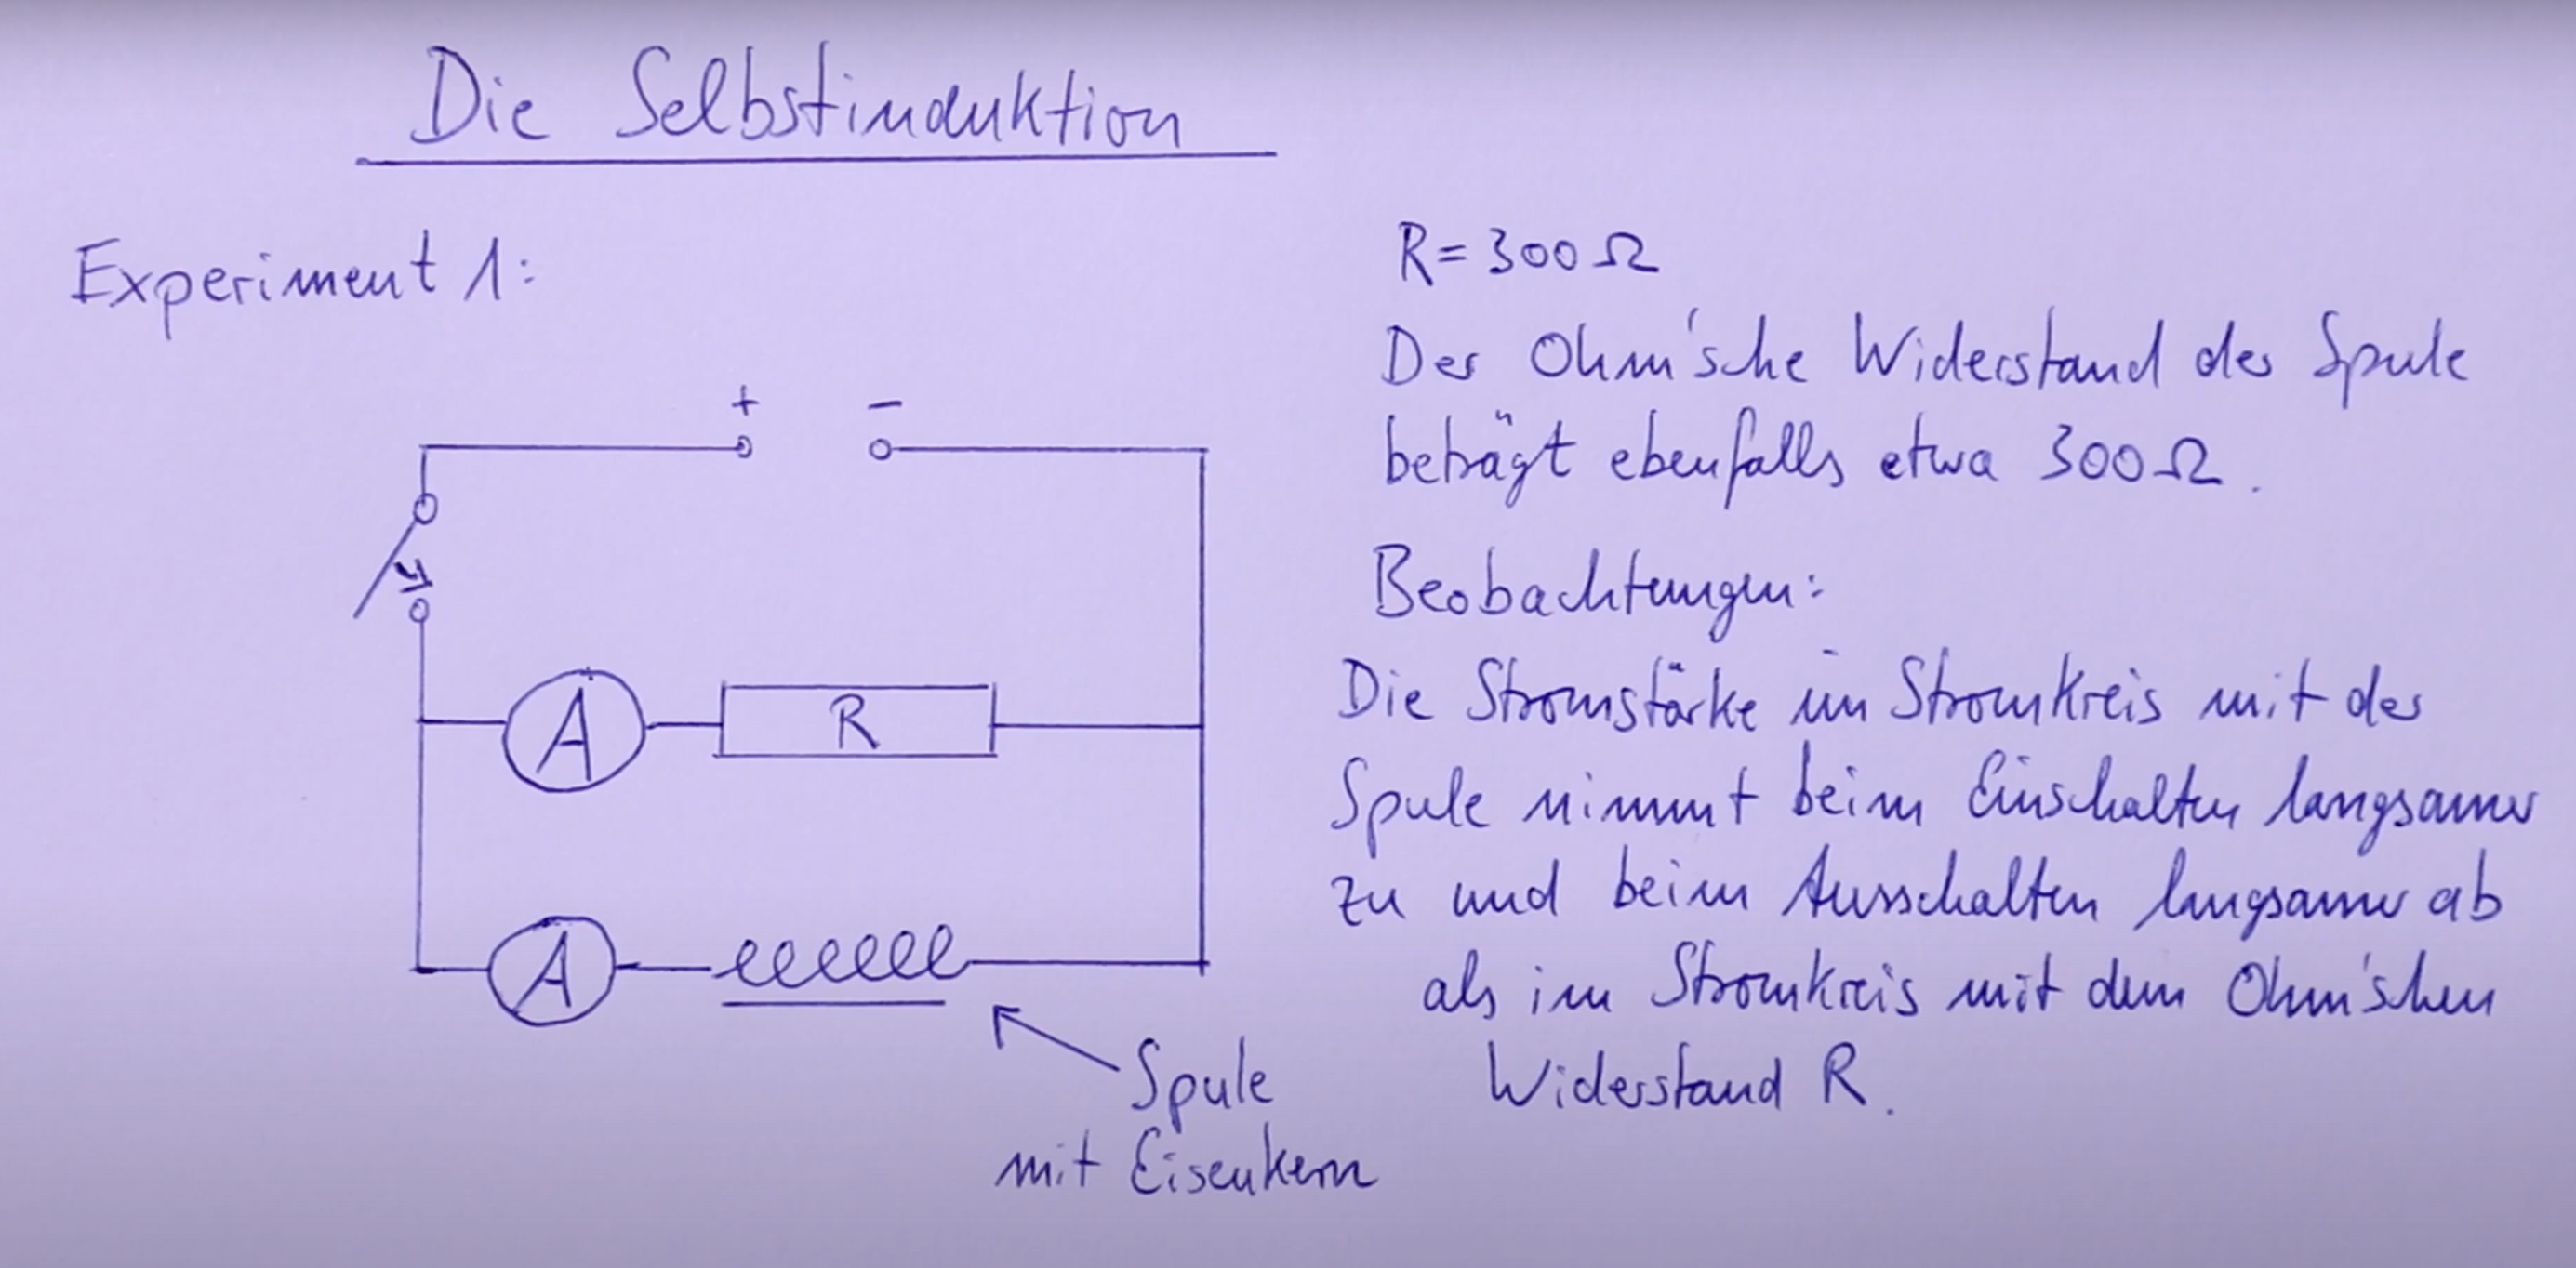 Die Selbstinduktion
Experiment 1:
+ −
A
R
A
Spule
mit Eisenkern
R = 300 Ω
Der Ohm'sche Widerstand der Spule
beträgt ebenfalls etwa 300 Ω.
Beobachtungen:
Die Stromstärke im Stromkreis mit der
Spule nimmt beim Einschalten langsamer
zu und beim Ausschalten langsamer ab
als im Stromkreis mit dem Ohm'schen
Widerstand R.